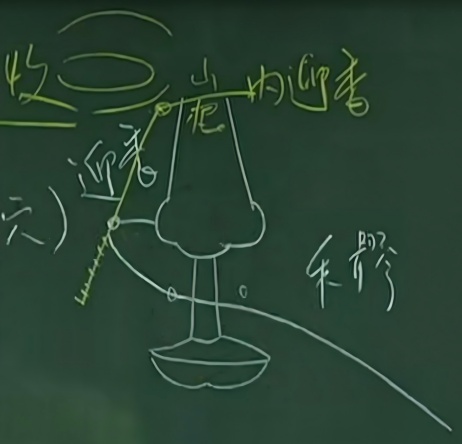 收
山根
内迎香
迎香
穴)
禾髎